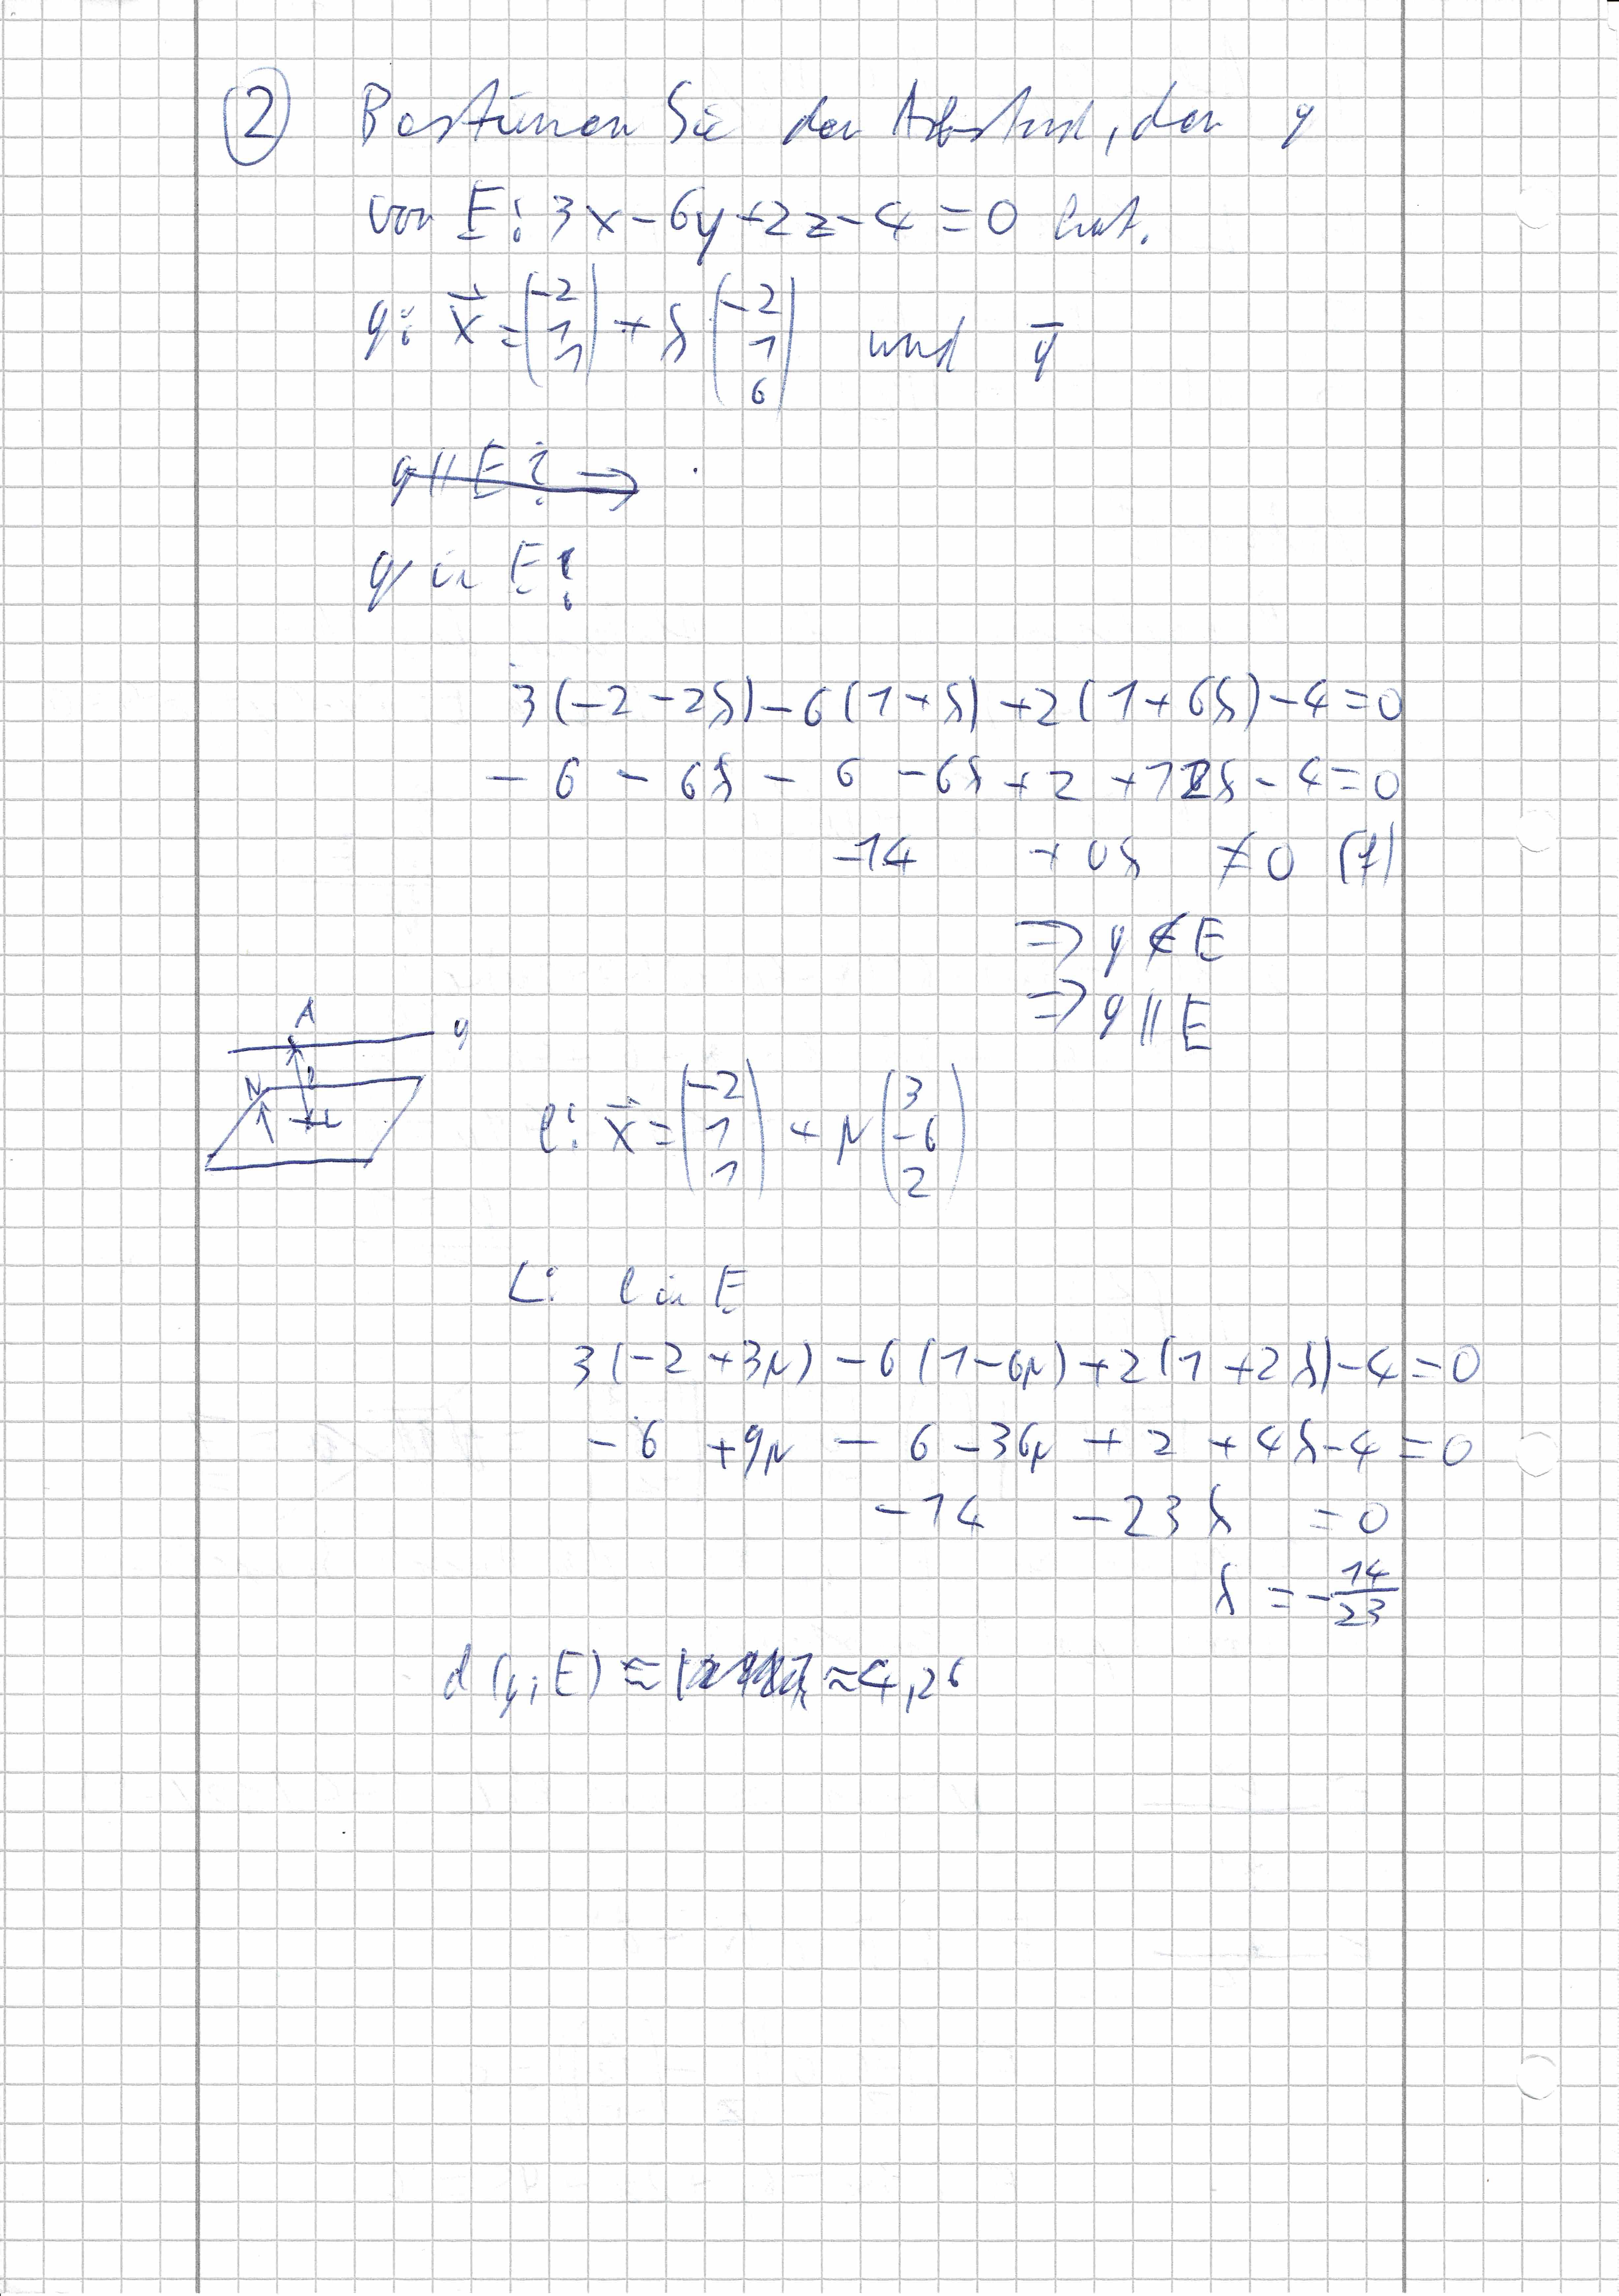 ② Bestimmen Sie den Abstand, den g
von E: 3x - 6y + 2z - 4 = 0 hat.
g: x⃗ = (-2 1 1) + λ (-2 1 6) und
g || E: ⇒
g in E:
3(-2 - 2λ) - 6(1 + λ) + 2(1 + 6λ) - 4 = 0
- 6 - 6λ - 6 - 6λ + 2 + 12λ - 4 = 0
-14 + 0λ ≠ 0 (f)
⇒ g ∉ E
⇒ g || E
A
g
N
l
L
l: x⃗ = (-2 1 1) + μ (3 -6 2)
L: l in E
3(-2 + 3μ) - 6(1 - 6μ) + 2(1 + 2λ) - 4 = 0
- 6 + 9μ - 6 - 36μ + 2 + 4λ - 4 = 0
-14 - 23λ = 0
λ = - 14/23
d(g; E) ≈ 4,26